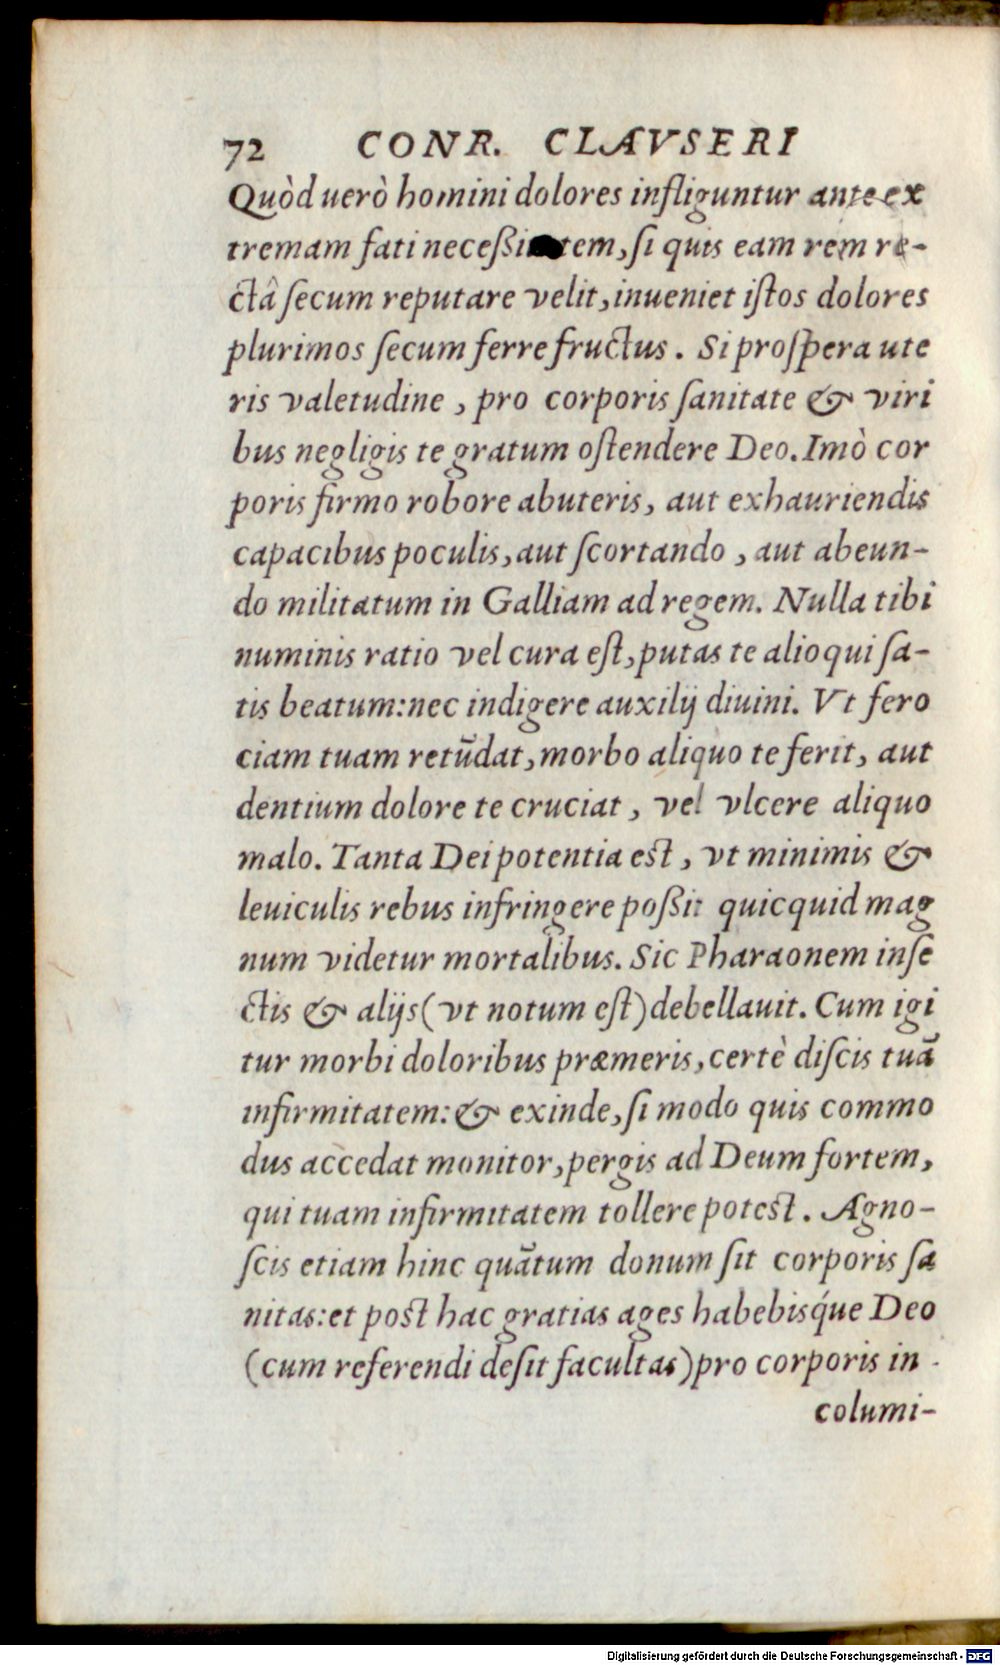 72 CONR. CLAVSERI
Quòd uerò homini dolores infliguntur ante ex
tremam fati neceßi tem, ſi quis eam rem re-
ctâ ſecum reputare velit, inueniet iſtos dolores
plurimos ſecum ferre fructus. Si proſpera ute
ris valetudine, pro corporis ſanitate & viri
bus negligis te gratum oſtendere Deo. Imò cor
poris firmo robore abuteris, aut exhauriendis
capacibus poculis, aut ſcortando, aut abeun-
do militatum in Galliam ad regem. Nulla tibi
numinis ratio vel cura eſt, putas te alioqui ſa-
tis beatum: nec indigere auxilij diuini. Vt fero
ciam tuam retūdat, morbo aliquo te ferit, aut
dentium dolore te cruciat, vel vlcere aliquo
malo. Tanta Dei potentia est, vt minimis &
leuiculis rebus infringere poßit quicquid mag
num videtur mortalibus. Sic Pharaonem inſe
ctis & alijs (vt notum eſt) debellauit. Cum igi
tur morbi doloribus præmeris, certè diſcis tuā
infirmitatem: & exinde, ſi modo quis commo
dus accedat monitor, pergis ad Deum fortem,
qui tuam infirmitatem tollere potest. Agno-
ſcis etiam hinc quātum donum ſit corporis ſa
nitas: et post hac gratias ages habebisq́ue Deo
(cum referendi deſit facultas) pro corporis in
columi-
Digitalisierung gefördert durch die Deutsche Forschungsgemeinschaft - DFG